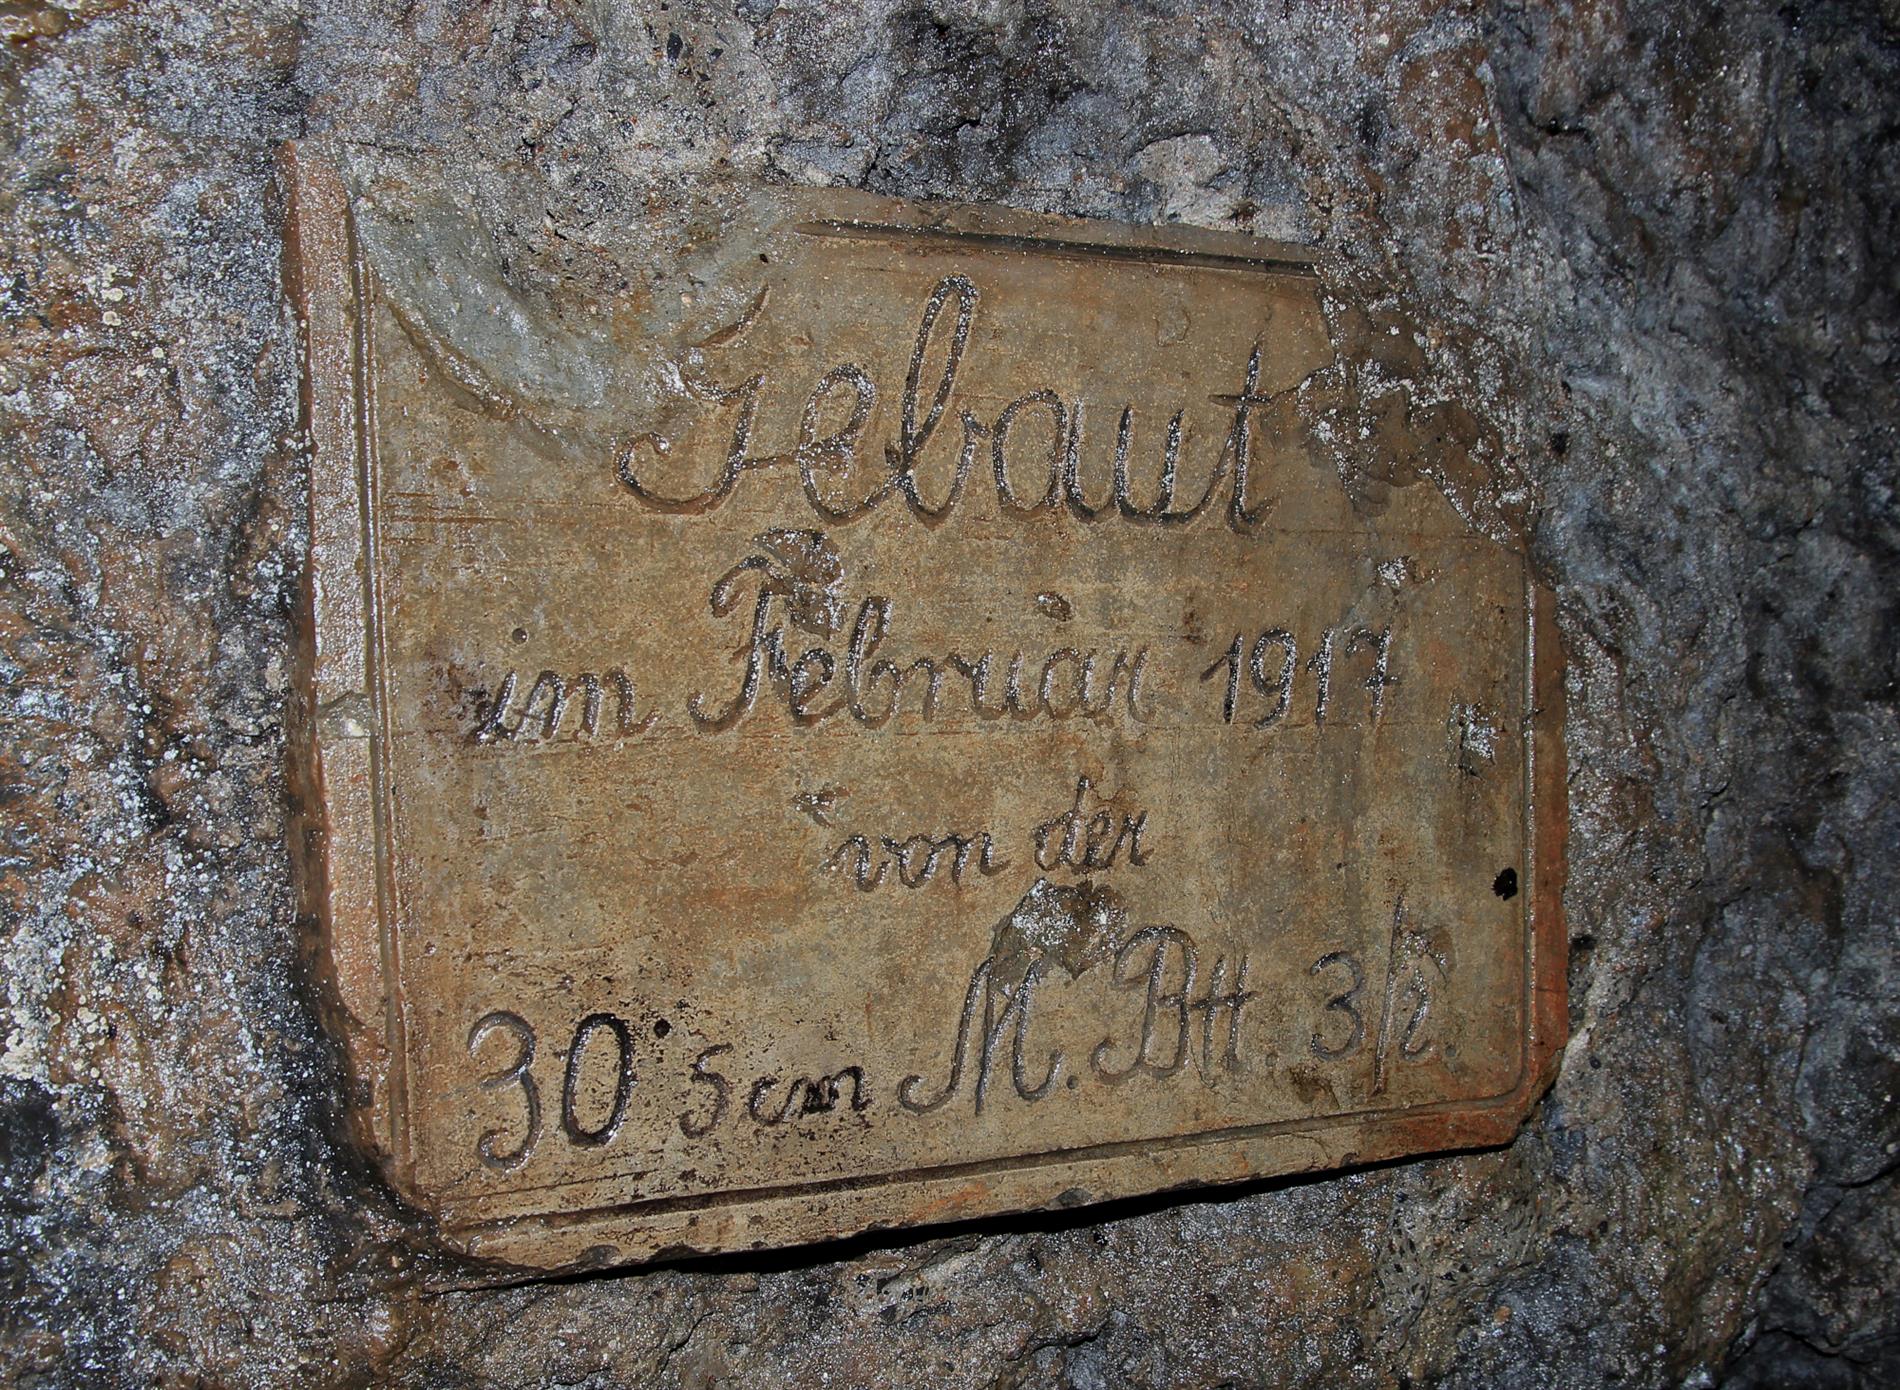 Gebaut
im Februar 1917
von der
30,5 cm M. Btt. 3/2.